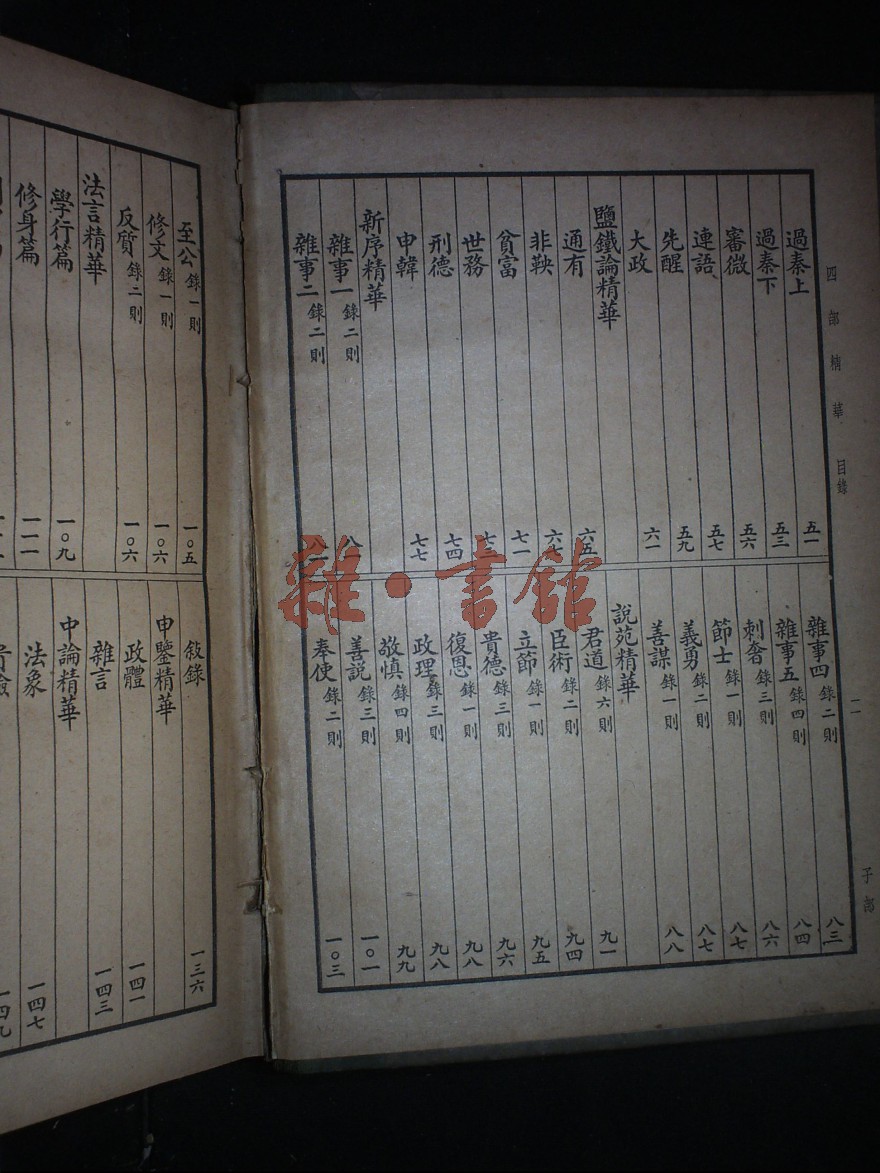 四部精華 目錄 二 子部
過秦上 五一
過秦下 五三
審微 五六
連語 五七
先醒 五九
大政 六一
鹽鐵論精華
通有 六五
非鞅 六七
貧富 七一
世務 七三
刑德 七四
申韓 七七
新序精華
雜事一 錄二則
雜事二 錄二則
雜事四 錄二則 八三
雜事五 錄四則 八四
刺奢 錄三則 八六
節士 錄一則 八七
義勇 錄二則 八七
善謀 錄一則 八八
說苑精華
君道 錄六則 九一
臣術 錄二則 九四
立節 錄一則 九五
貴德 錄三則 九六
復恩 錄一則 九八
政理 錄三則 九八
敬慎 錄四則 九九
善說 錄三則 一〇一
奉使 錄二則 一〇三
至公 錄一則 一〇五
修文 錄一則 一〇六
反質 錄二則 一〇六
法言精華
學行篇 一〇九
修身篇 一一一
敍錄 一三六
申鑒精華
政體 一四一
雜言 一四三
中論精華
法象 一四七
一四九
雜·書館